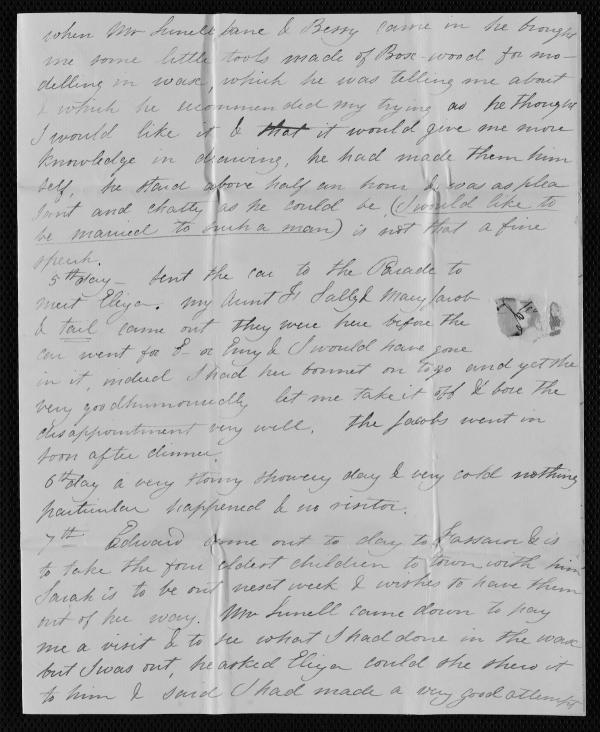 when Mr Sinell Jane & Bessy came in he brought
me some little tools made of Box-wood for mo-
delling in wax, which he was telling me about
& which he recommended my trying as he thought
I would like it & that it would give me more
knowledge in drawing, he had made them him
self, he staid above half an hour & was as plea
sant and chatty as he could be (I would like to
be married to such a man) is not that a fine
speech.
5th day - sent the car to the Parade to
meet Eliza. My Aunt F Sally & Mary Jacob
& tail came out they were here before the
car went for E- or Emy & I would have gone
in it, indeed I had her bonnet on to go and yet she
very goodhumouredly let me take it off & bore the
disappointment very well. the Jacobs went in
soon after dinner.
6th day a very stormy showery day & very cold nothing
particular happened & no visitor.
7th Edward came out to day to & is
to take the four eldest children to town with him
Sarah is to be out next week & wishes to have them
out of her way. Mr Sinell came down to pay
me a visit & to see what I had done in the wax
but I was out, he asked Eliza could she shew it
to him & said I had made a very good attempt